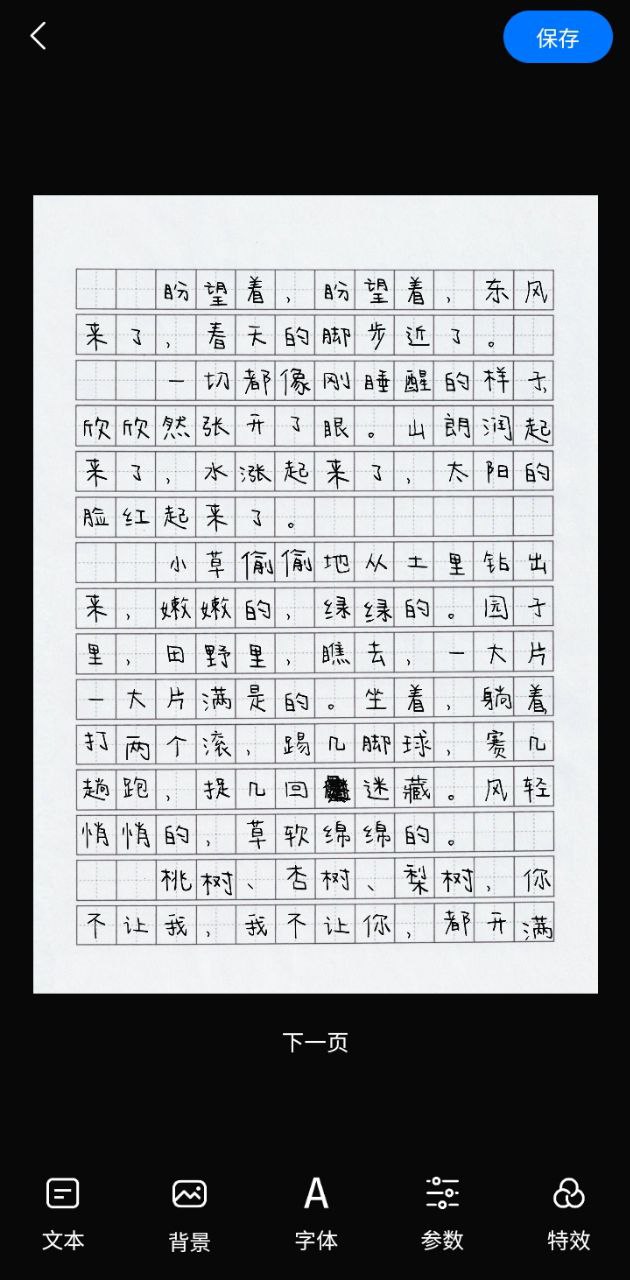 保存
盼望着，盼望着，东风
来了，春天的脚步近了。
一切都像刚睡醒的样子，
欣欣然张开了眼。山朗润起
来了，水涨起来了，太阳的
脸红起来了。
小草偷偷地从土里钻出
来，嫩嫩的，绿绿的。园子
里，田野里，瞧去，一大片
一大片满是的。坐着，躺着，
打两个滚，踢几脚球，赛几
趟跑，捉几回迷藏。风轻
悄悄的，草软绵绵的。
桃树、杏树、梨树，你
不让我，我不让你，都开满
下一页
文本 背景 字体 参数 特效